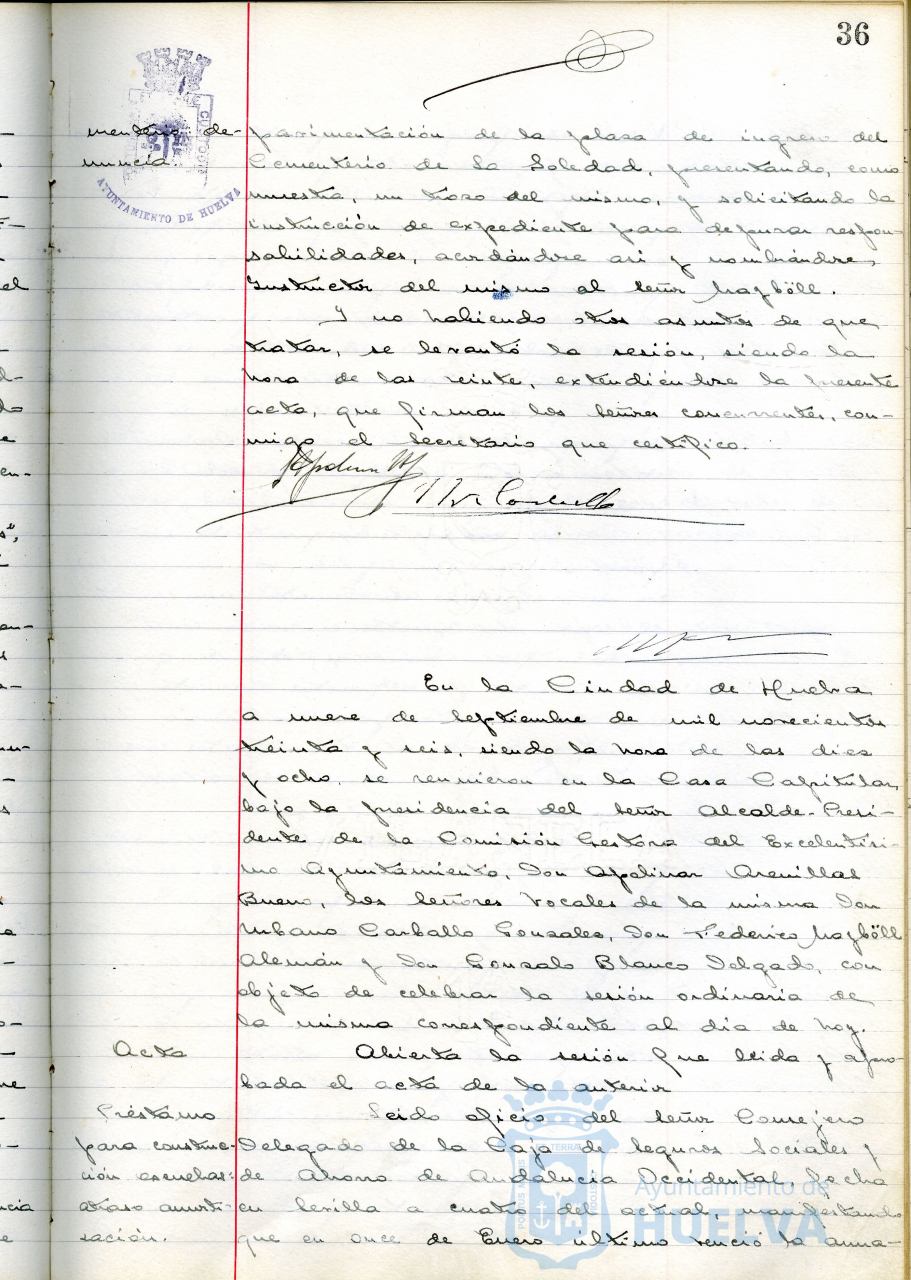 36
menterio de-
nuncia.
AYUNTAMIENTO DE HUELVA
pavimentación de la plaza de ingreso del
Cementerio de La Soledad, presentando, como
muestra, un trozo del mismo, y solicitando la
instrucción de expediente para depurar respon-
sabilidades, acordándose así y nombrándose
Instructor del mismo al señor Mazböll.
Y no habiendo otros asuntos de que
tratar, se levantó la sesión, siendo la
hora de las veinte, extendiéndose la presente
acta, que firman los señores concurrentes, con-
migo el Secretario que certifico.
En la Ciudad de Huelva
a nueve de Septiembre de mil novecientos
treinta y seis, siendo la hora de las diez
y ocho, se reunieron en la Casa Capitular,
bajo la presidencia del señor Alcalde-Presi-
dente de la Comisión Gestora del Excelentísi-
mo Ayuntamiento, Don Apolinar Arenillas
Bueno, los señores Vocales de la misma Don
Urbano Carballo Gonzales, Don Federico Mazböll
Alemán y Don Gonzalo Blanco Delgado, con
objeto de celebrar la sesión ordinaria de
la misma correspondiente al día de hoy.
Acta
Abierta la sesión fue leida y apro-
bada el acta de la anterior
Préstamo
para construc-
ción escuelas:
atraso amorti-
zación.
Leido oficio del señor Consejero
Delegado de la Caja de Seguros Sociales y
de Ahorro de Andalucia Occidental, fecha
en Sevilla a cuatro del actual, manifestando
que en once de Enero último venció la anua-
Ayuntamiento de
HUELVA